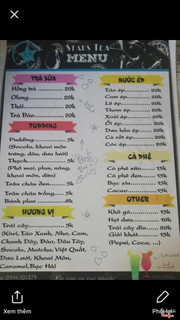 STARS TEA
MENU
TRÀ SỮA
Hồng trà 20k
Olong 20k
Thái 20k
Trà Đào 20k
PUDDING
Pudding 5k
(Socola, khoai môn
trứng, dâu, dưa lưới)
Thạch 5k
(Phô mai, plan, năng,
khoai môn, dẻo)
Trân châu đen 5k
Trân châu trắng 5k
Bánh plan
HƯƠNG VỊ
Trái cây 5k
(Kiwi, Táo Xanh, Nho, Cam,
Chanh Dây, Đào, Dâu Tây,
Socola, Matcha, Việt Quất,
Dưa Lưới, Khoai Môn,
Caramel, Bạc Hà)
NƯỚC ÉP
Táo ép 20k
Cam ép 20k
Lê ép 20k
Thơm ép 20k
Xoài ép 20k
Ổi ép 20k
Dưa hấu ép 20k
Cà rốt ép 20k
Cà chua ép 20k
CÀ PHÊ
Cà phê sữa 15k
Cà phê đá
Bạc xỉu
Cacao 15k
OTHER
Khô gà 15k
Hạt dưa 10k
Trái cây dĩa 20k
Giải khát 15k
(Pepsi, Coca, ...)
Xem thêm